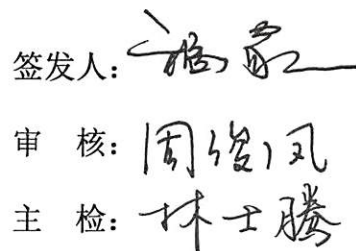 签发人：
审　核：周俊凤
主　检：林士腾